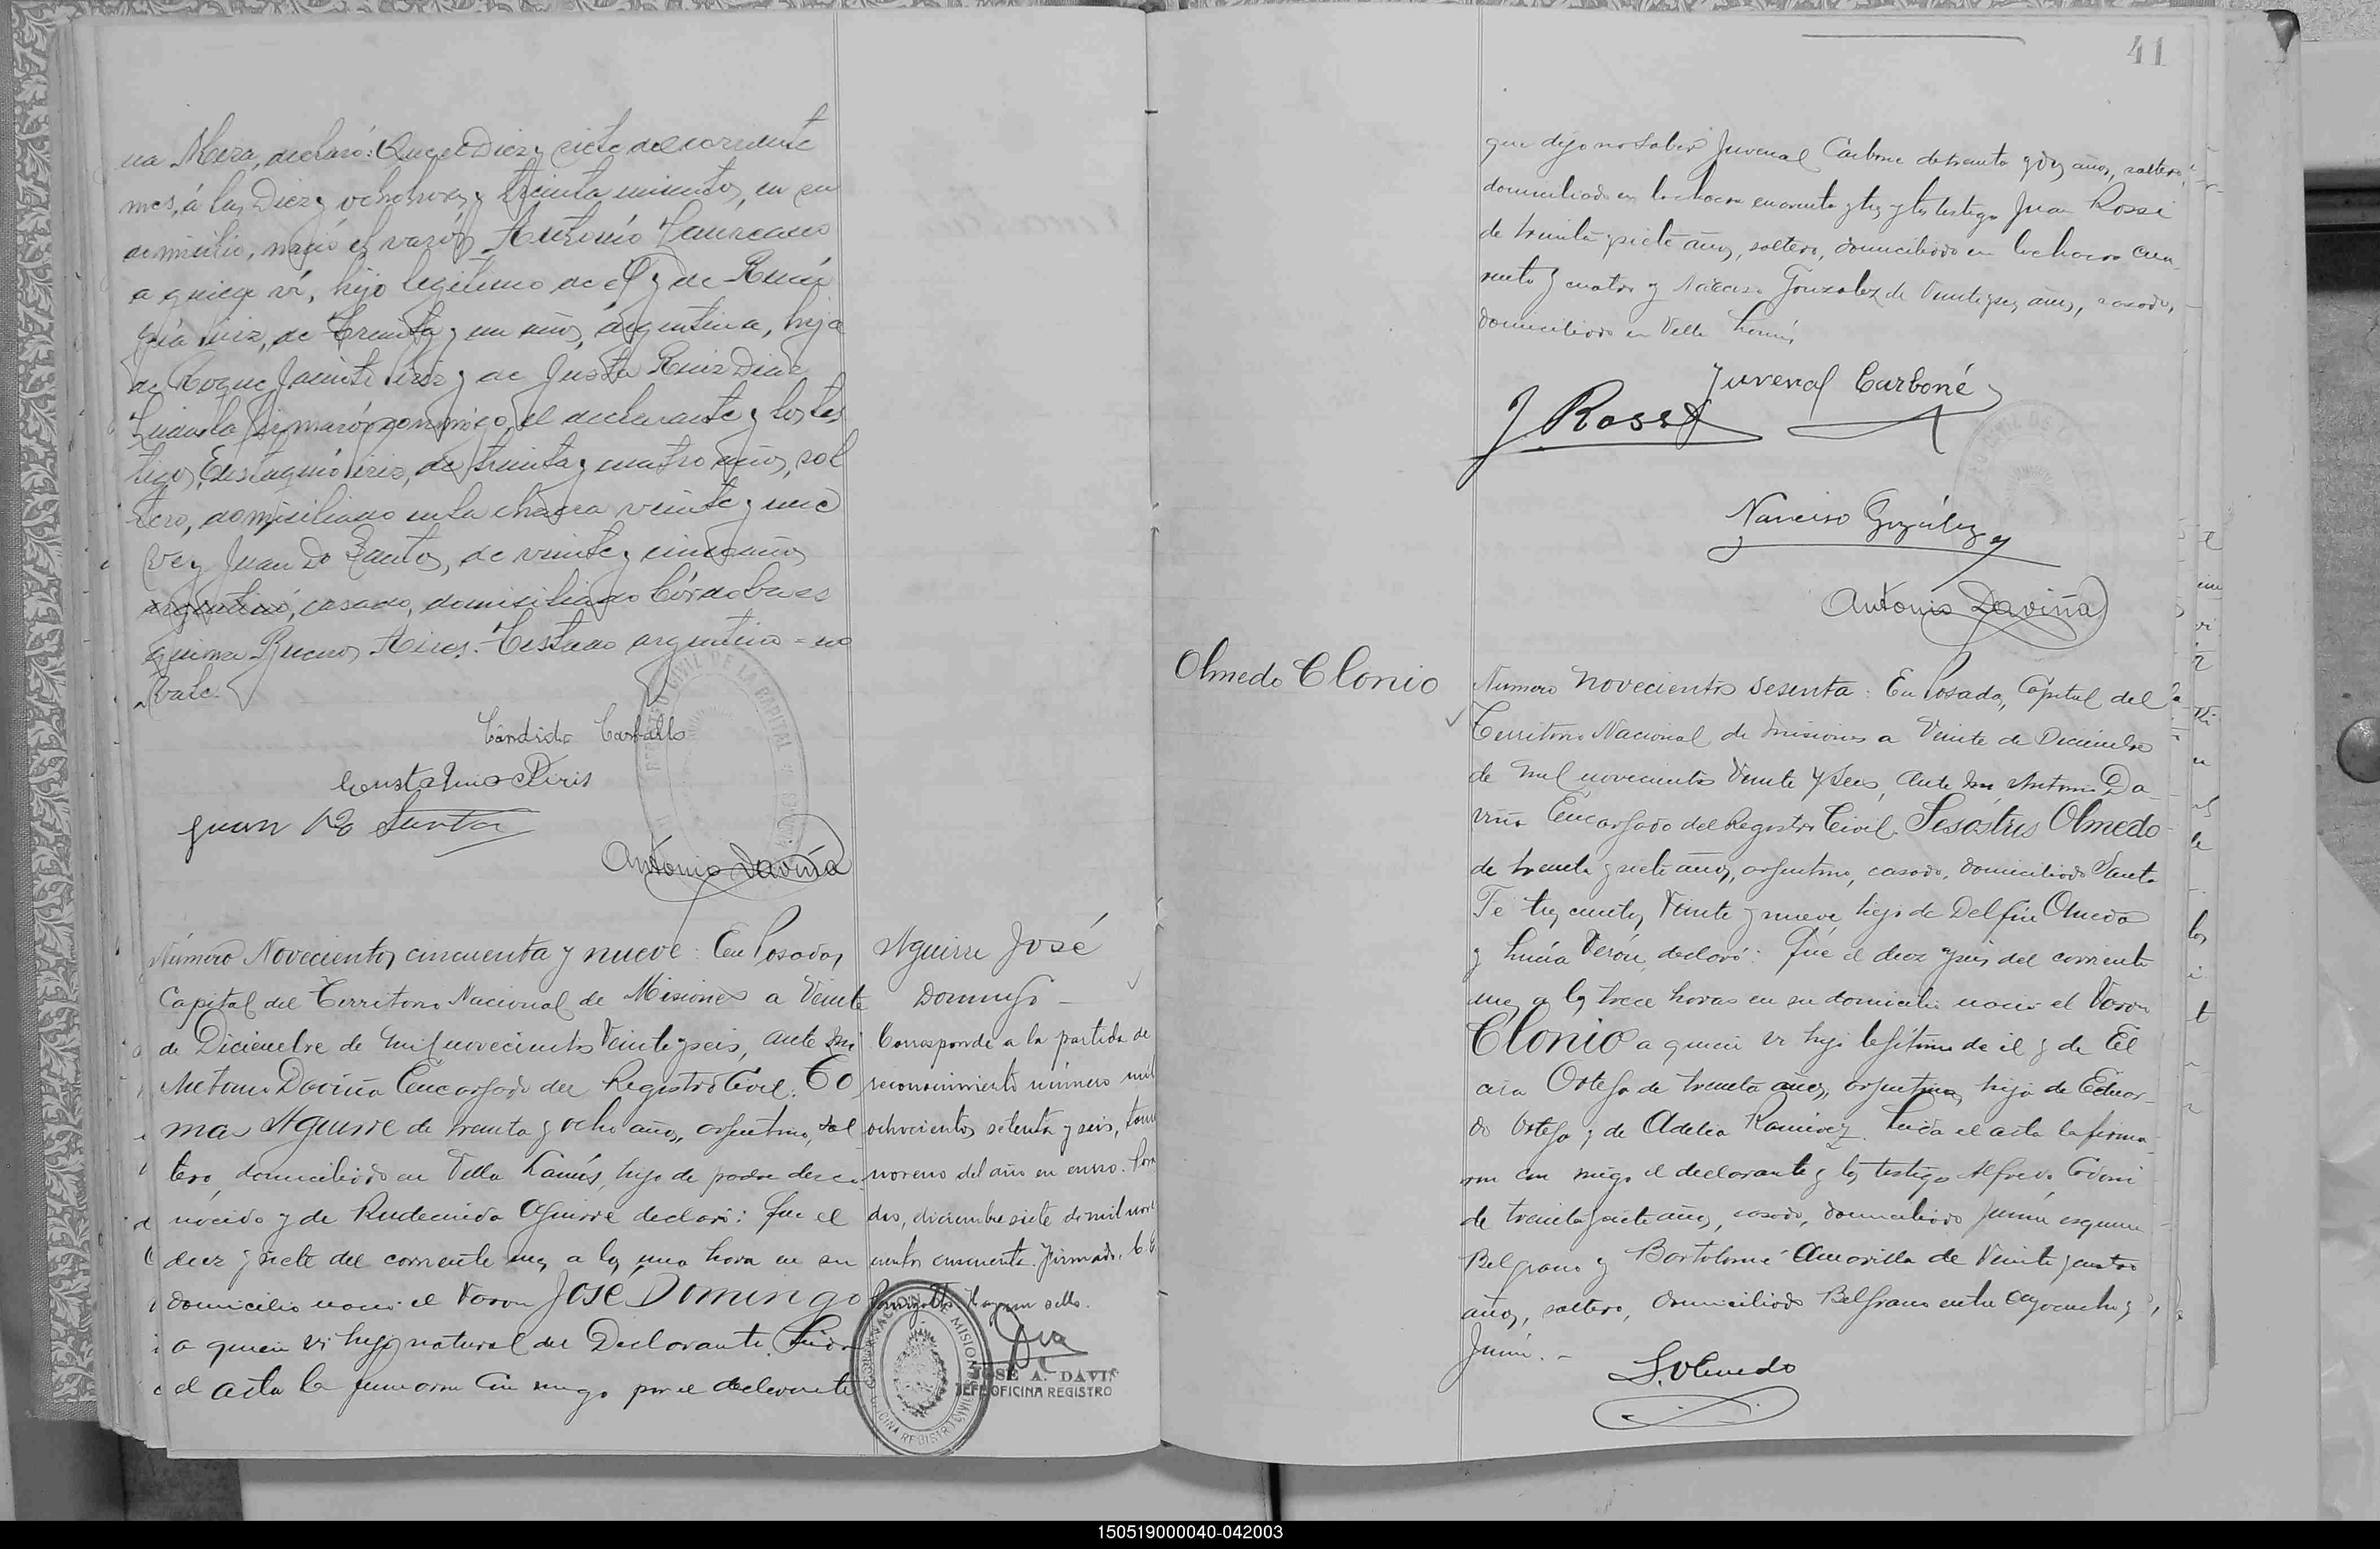 na Mera, declaró: Que el Diez y siete del corriente
mes, á las Diez y ocho horas y treinta minutos, en su
domicilio, nació el varón Antonio Laureano
a quien ví, hijo legítimo de él y de
de treinta y un años, argentina, hija
de Roque Jacinto y de Justa Ruiz Diaz
Leída la firmarón conmigo, el declarante y los tes
tigos, Eustaquio Piris, de treinta y cuatro años, sol
tero, domiciliado en la chacra veinte y nue
ve y Juan Do Santos, de veinte y cinco años
argentino, casado, domiciliado Córdoba es
quina Buenos Aires. Testado argentino = no
vale.
Cándido Carballo
Eustaquio Piris
Juan Do Santos
Antonio Daviña
Número Novecientos cincuenta y nueve: En Posadas,
Capital del Territorio Nacional de Misiones a Veinte
de Diciembre de Mil novecientos Veinte y seis, ante mi
Antonio Daviña Encargado del Registro Civil: To
mas Aguirre de treinta y ocho años, argentino, sol
tero, domiciliado en Villa Lanús, hijo de padre desco
nocido y de Rudecinda Aguirre declaró: Que el
diez y siete del corriente mes a las una hora en su
domicilio nació el Varon José Domingo
a quien vi hijo natural del Declarante. Leida
el acta la firmaron con migo por el declarante
Aguirre José
Domingo
Corresponde a la partida de
reconocimiento número mil
ochocientos setenta y seis, tomo
noveno del año en curso. Posa
das, diciembre siete de mil nove
cientos cincuenta. Firmado:
Hay un sello.
GOBERNACION DE MISIONES
OFICINA REGISTRO CIVIL
JOSÉ A. DAVIÑ
JEFE OFICINA REGISTRO
41
que dijo no saber Juvenal Carbone de treinta y dos años, soltero,
domiciliado en la chacra cuarenta y tres y los testigos Juan Rossi
de treinta y siete años, soltero, domiciliado en la chacra cua
renta y cuatro y Narciso Gonzalez de Veinte y seis años, casado,
domiciliado en Villa Lanús
Juvenal Carboné
J. Rossi
Narciso González
Antonio Daviña
Olmedo Clonio
Número novecientos sesenta: En Posadas, Capital del
Territorio Nacional de Misiones a Veinte de Diciembre
de Mil novecientos Veinte y Seis, ante mi, Antonio Da
viña Encargado del Registro Civil. Sesostris Olmedo
de treinta y siete años, argentino, casado, domiciliado Santa
Fé tres cientos Veinte y nueve, hijo de Delfin Olmedo
y Lucía Verón, declaró: Que el diez y seis del corriente
mes a las trece horas en su domicilio nació el Varon
Clonio a quien vi hijo legítimo de él y de
Ortega de treinta años, argentina, hija de Eduar
do Ortega y de Adelia Ramirez. Leida el acta la firma
ron con migo el declarante y los testigos Alfredo
de treinta y siete años, casado, domiciliado Junín esquina
Belgrano y Bartolomé Amarilla de Veinte y cuatro
años, soltero, domiciliado Belgrano entre Ayacucho y
Junín.
S. Olmedo
150519000040-042003